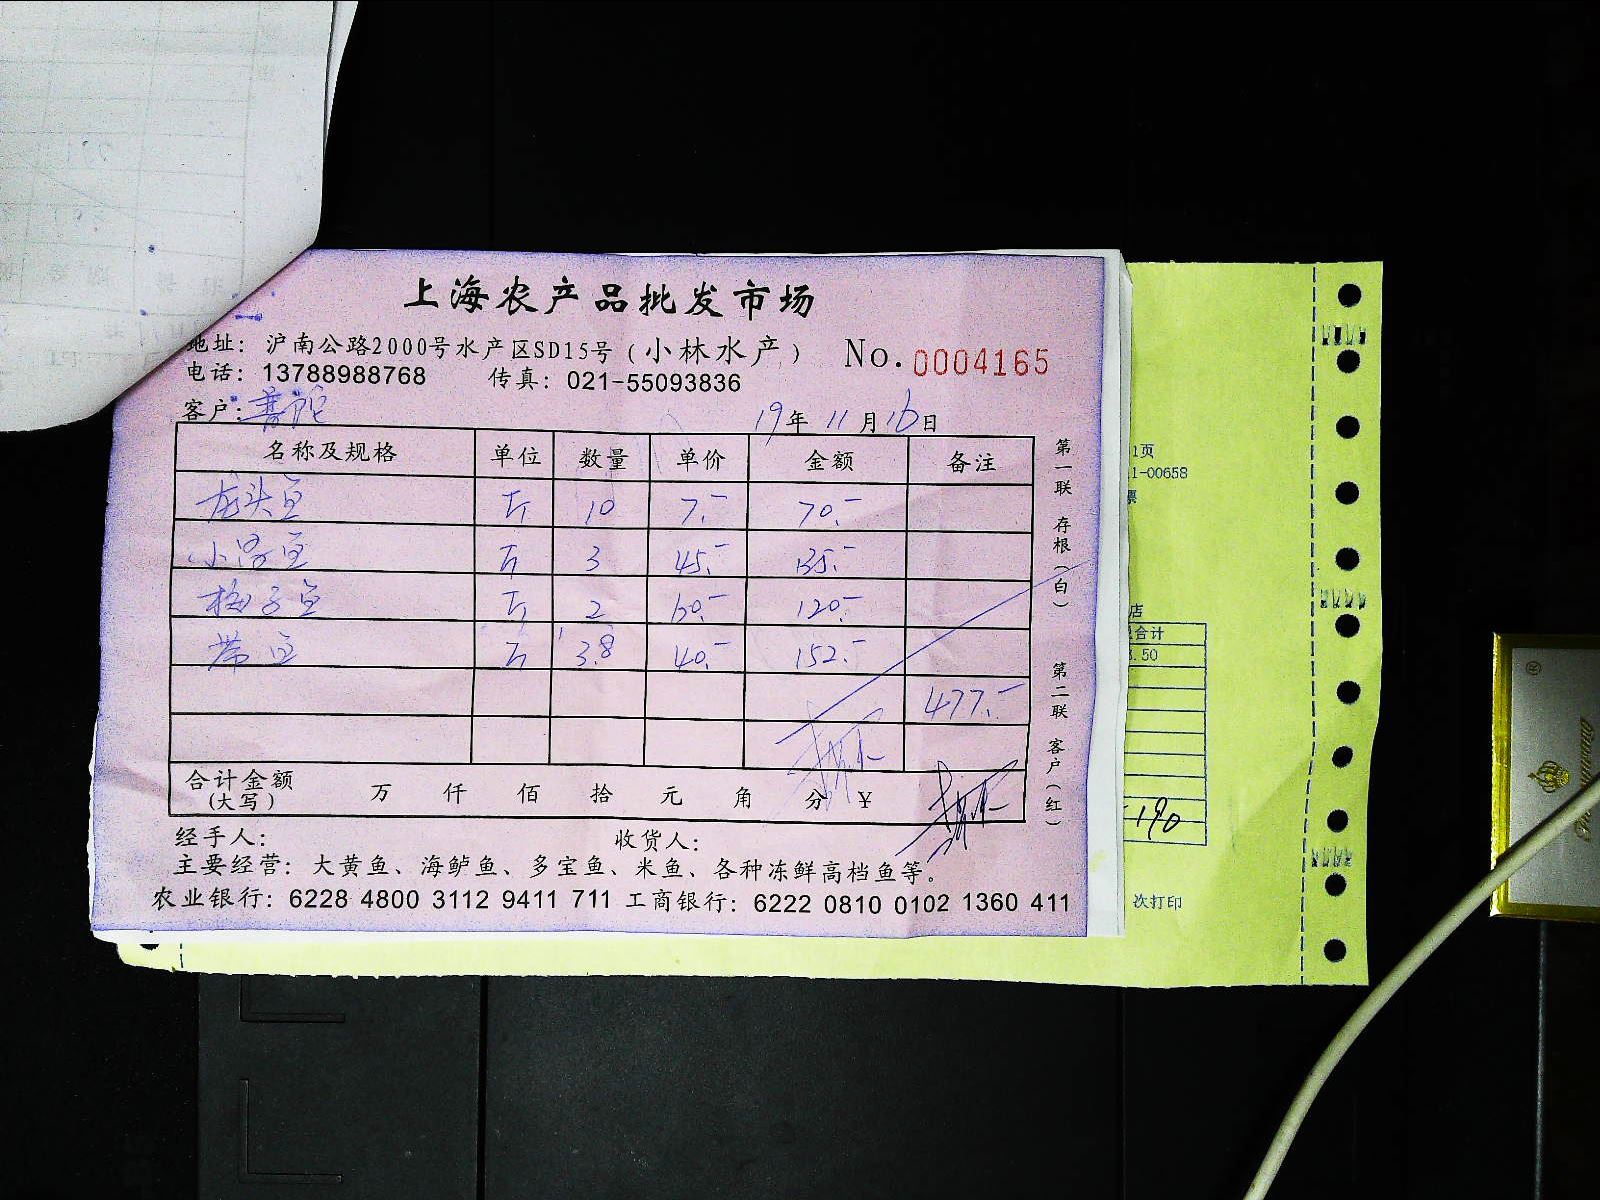 上海农产品批发市场
地址：沪南公路2000号水产区SD15号（小林水产） No.0004165
电话：13788988768 传真：021-55093836
客户：普陀 19年11月16日
名称及规格 单位 数量 单价 金额 备注
龙头鱼 斤 10 7.- 70.-
小黄鱼 斤 3 45.- 135.-
梅子鱼 斤 2 60.- 120.-
带鱼 斤 3.8 40.- 152.-
477.-
合计金额（大写） 万 仟 佰 拾 元 角 分 ￥
经手人： 收货人：
主要经营：大黄鱼、海鲈鱼、多宝鱼、米鱼、各种冻鲜高档鱼等。
农业银行：6228 4800 3112 9411 711 工商银行：6222 0810 0102 1360 411
第一联 存根（白） 第二联 客户（红）
1页
1-00658
票
店
合计
.50
190
次打印